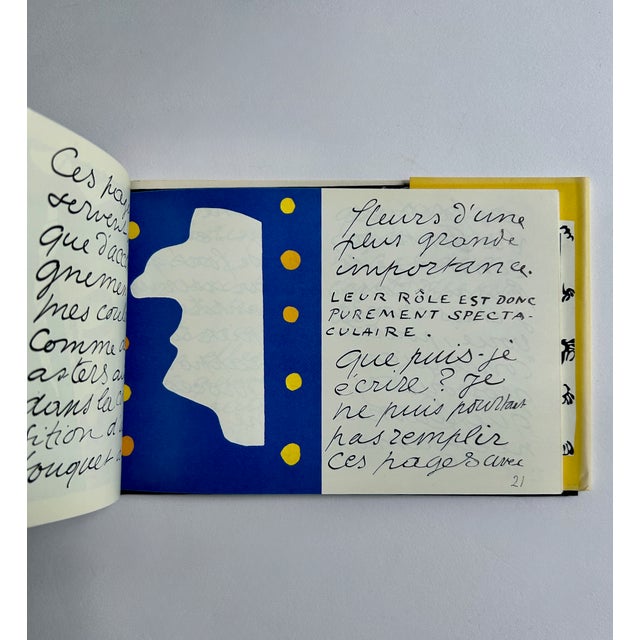 Ces
que
mes
Comme
asters
dans la
bouquet
fleurs d'une
plus grande
importance.
LEUR RÔLE EST DONC
PUREMENT SPECTA-
CULAIRE.
Que puis-je
écrire? Je
ne puis pourtant
pas remplir
ces pages avec
21